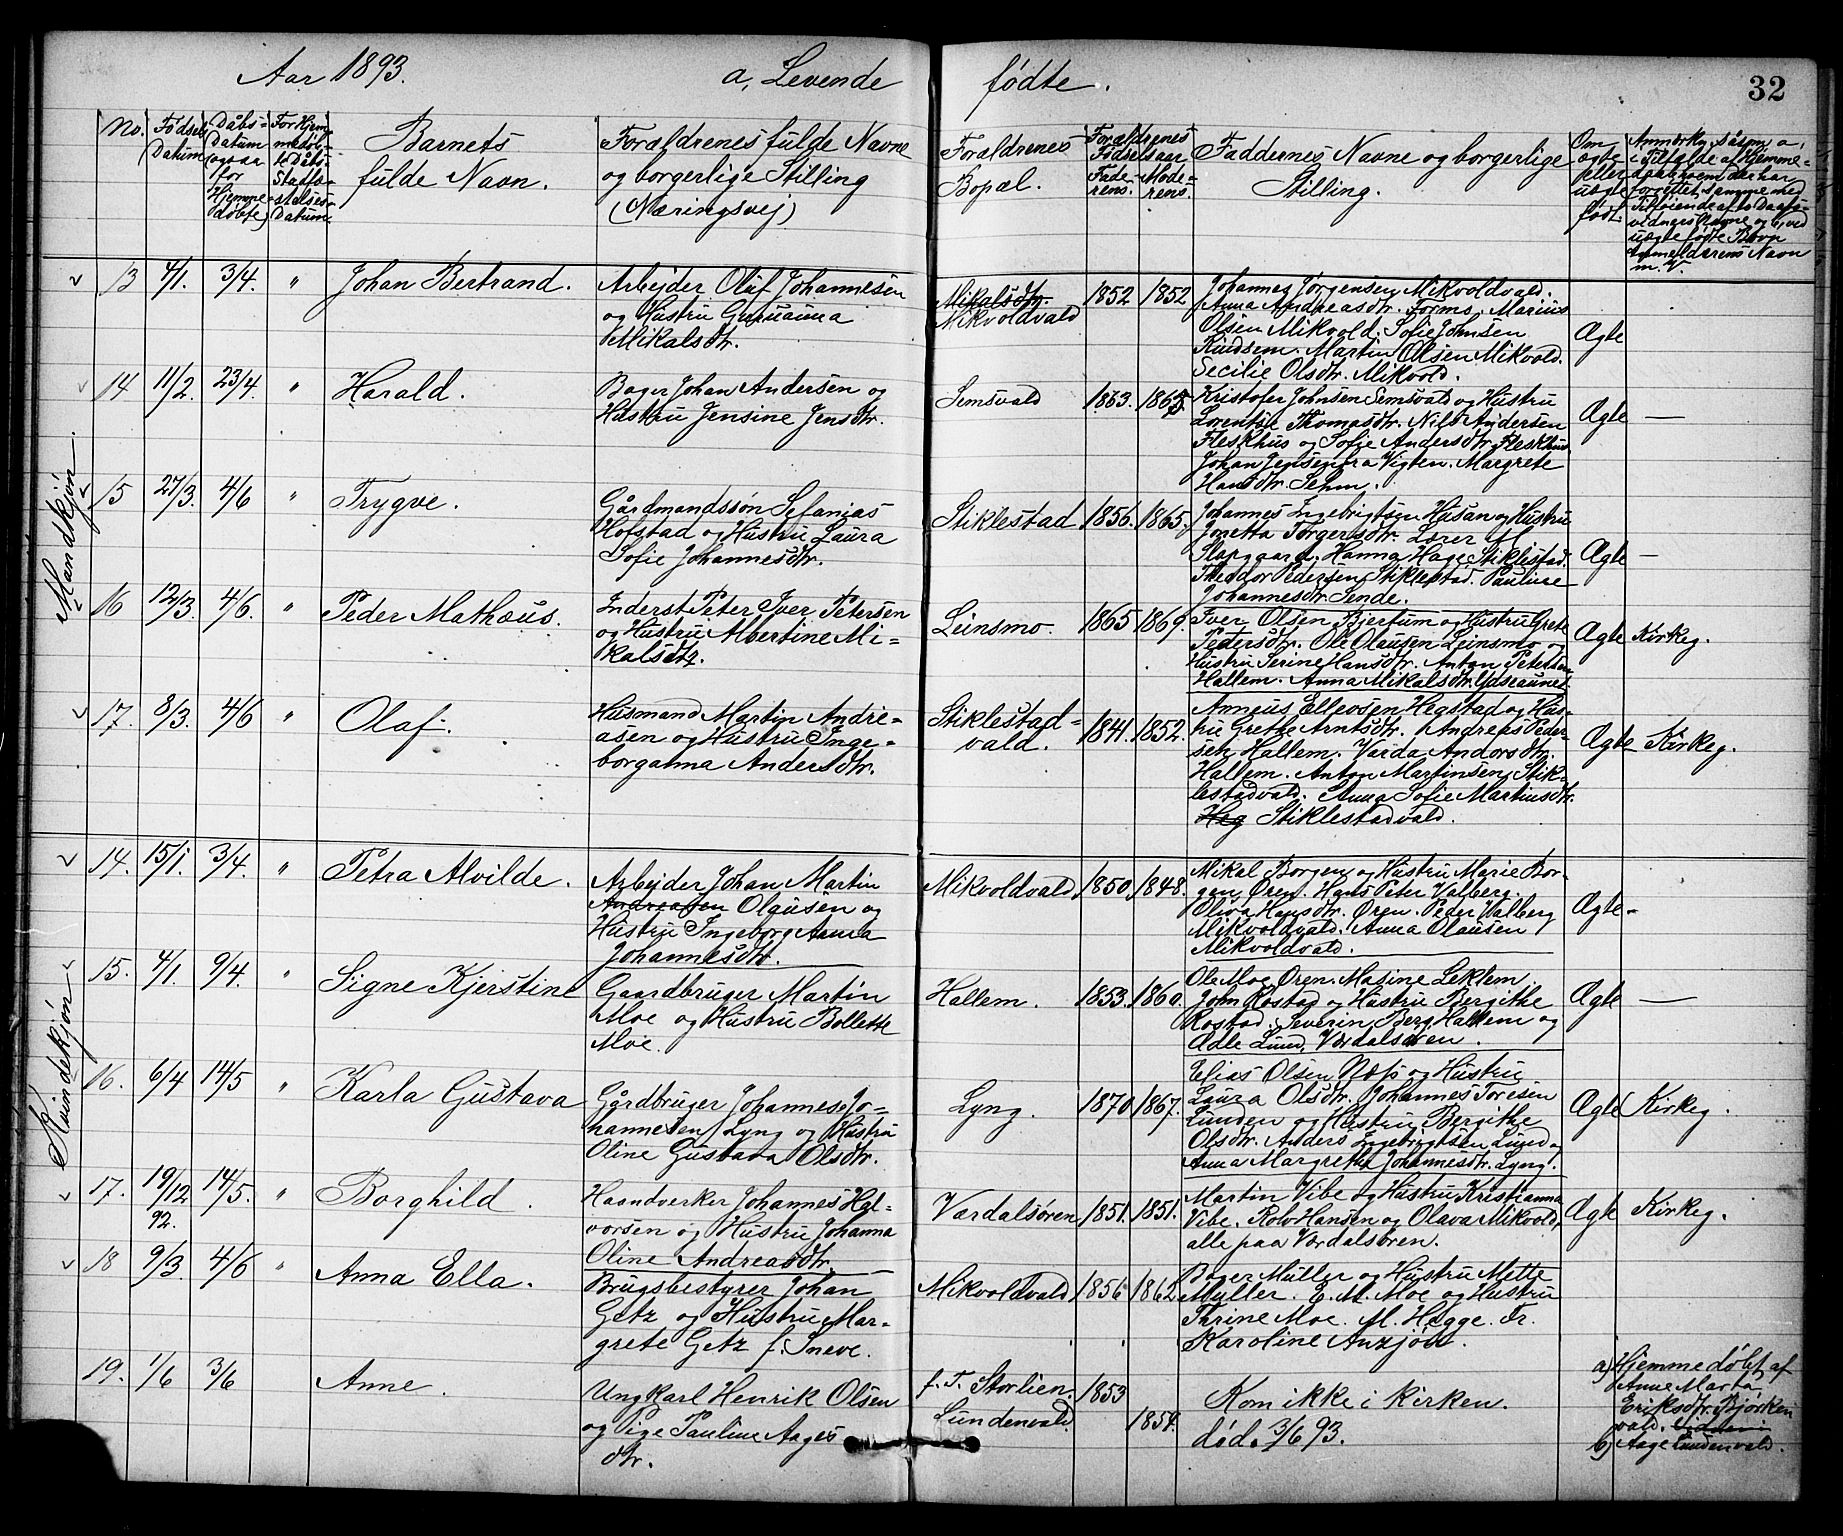 Aar 1893. a, Levende fødte. 32
No. Fødsels Datum Dåbs-Datum (ogsaa for Hjemme-døbte) For Hjemmedøb-te Dåbs-Stadfæ-stelses-Datum.
Barnets fulde Navn.
Forældrenes fulde Navne
og borgerlige Stilling
(Næringsvej)
Forældrenes Bopæl.
Forældrenes Fødselsaar Fade-rens. Mode-rens.
Faddernes Navne og borgerlige
Stilling.
Om ægte eller uægte født.
Anmærkn. såsom a,
i Tilfælde af Hjemme-
dåb, hvem der har
forrettet samme med
Tilføiende af to Daabs-
vidners Navne og b, ved
uægte fødte Børn
Anmelderens Navn
m. V.
Mandkjøn.
13 4/1. 3/4. " Johan Bertrand.
Arbejder Oluf Johannesen
og Hustru Guruanna
Mikalsdtr.
Mikalsdtr.
Mikvoldvald
1852 1852
Johannes Jørgensen Mikvoldvald.
Anna Andreasdtr. Formo, Marius
Olsen Mikvold. Sofie Johnsen
Kindsem. Martin Olsen Mikvold.
Secilie Olsdtr. Mikvold.
Ægte
14 11/2. 23/4. " Harald.
Bager Johan Andersen og
Hustru Jensine Jensdtr.
Semsvald 1863. 1865.
Kristofer Johnsen Semsvald og Hustru
Lorentse Thomasdtr. Nils Andersen
Fleskhus og Sofie Andersdtr. Fleskhus
Johan Jensen fra Vigten. Margrete
Hansdtr. Sehm.
Ægte —
15 27/3. 4/6 " Trygve.
Gårdmandssøn Sefanias
Hofstad og Hustru Laura
Sofie Johannesdtr.
Stiklestad 1856. 1865.
Johannes Ingebrigtsen Husan og Hustru
Jonetta Torgersdtr. Lærer M
Slapgaard. Hanna Hage Stiklestad.
Theodor Pedersen Stiklestad. Pauline
Johannesdtr. Sende.
Ægte —
16 12/3. 4/6. " Peder Mathæus.
Inderst Peter Iver Petersen
og Hustru Albertine Mi-
kalsdtr.
Leinsmo. 1865 1869.
Iver Olsen Bjertum og Hustru Grete
Pedersdtr. Ole Olausen Leinsmo og
Hustru Serine Hansdtr. Anton Petersen
Hallem. Anna Mikalsdtr.
Ægte Kirkeg.
17. 8/3. 4/6 " Olaf.
Husmand Martin Andre-
asen og Hustru Inge-
borganna Andersdtr.
Stiklestad-
vald.
1841. 1852.
Anneus Ellevsen Hegstad og Hus-
tru Grethe Arntsdtr. Andreas Peder-
sen Hallem. Varda Andersdtr.
Hallem. Anton Martinsen, Stik-
lestadvald. Anna Sofie Martinsdtr.
Heg Stiklestadvald.
Ægte Kirkeg.
Kvindekjøn
14. 15/1. 3/4. " Petra Alvilde.
Arbejder Johan Martin
Andreassen Olausen og
Hustru Ingeborg Anna
Johannesdtr.
Mikvoldvald 1850. 1848.
Mikal Borgen og Hustru Marie Bor-
gen Øren. Hans Peter Valberg.
Oliva Hansdtr. Øren. Peder Valberg
Mikvoldvald. Anna Olausen
Mikvoldvald.
Ægte -
15. 4/1. 9/4. " Signe Kjerstine
Gaardbruger Martin
Moe og Hustru Bollette
Moe.
Hallem. 1853. 1860.
Ole Moe Øren. Masine Leklem
John Rostad og Hustru Bergithe
Rostad. Severin Berg Hallem og
Adle Lund, Værdalsøren.
Ægte —
16. 6/4 14/5 " Karla Gustava
Gårdbruger Johannes Jo-
hannesen Lyng og Hustru
Oline Gustava Olsdtr.
Lyng. 1870 1867.
Elias Olsen Næss og Hustru
Laura Olsdtr. Johannes Toresen
Lunden og Hustru Bergithe
Olsdtr. Anders Ingebrigtsen Lund og
Anna Margrethe Johannesdtr. Lyng.
Ægte Kirkeg.
17. 19/12 92. 14/5. " Borghild.
Haandverker Johannes Hal-
vorsen og Hustru Johanna
Oline Andreasdtr.
Værdalsøren 1851. 1851.
Martin Vibe og Hustru Kristianna
Vibe. Rolv Hansen og Olava Mikvold,
alle paa Værdalsøren.
Ægte Kirkeg.
18 9/3. 4/6 " Anna Ella.
Brugsbestyrer Johan
Getz og Hustru Mar-
grete Getz f. Sneve.
Mikvoldvald 1856 1862
Bager Müller og Hustru Mette
Müller. E. M. Moe og Hustru
Thrine Moe. M. Hegge. Fr.
Karoline Auzjøn.
19. 1/6 3/6 Anne.
Ungkarl Henrik Olsen
og Pige Pauline Aages
dtr.
f. T. Storlien.
Lundenvald.
1853
1854.
Kom ikke i Kirken.
død. 3/6 93.
a) Hjemmedøbt af
Anne Marta
Eriksdtr. Bjørken
vald.
b) Aage Lundenvald.